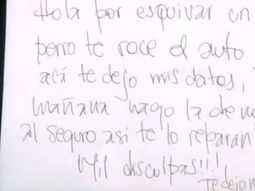 Hola por esquivar un
perro te roce el auto
acá te dejo mis datos,
mañana hago la denu
al seguro asi te lo reparan
Mil disculpas!!!
Te dejo m